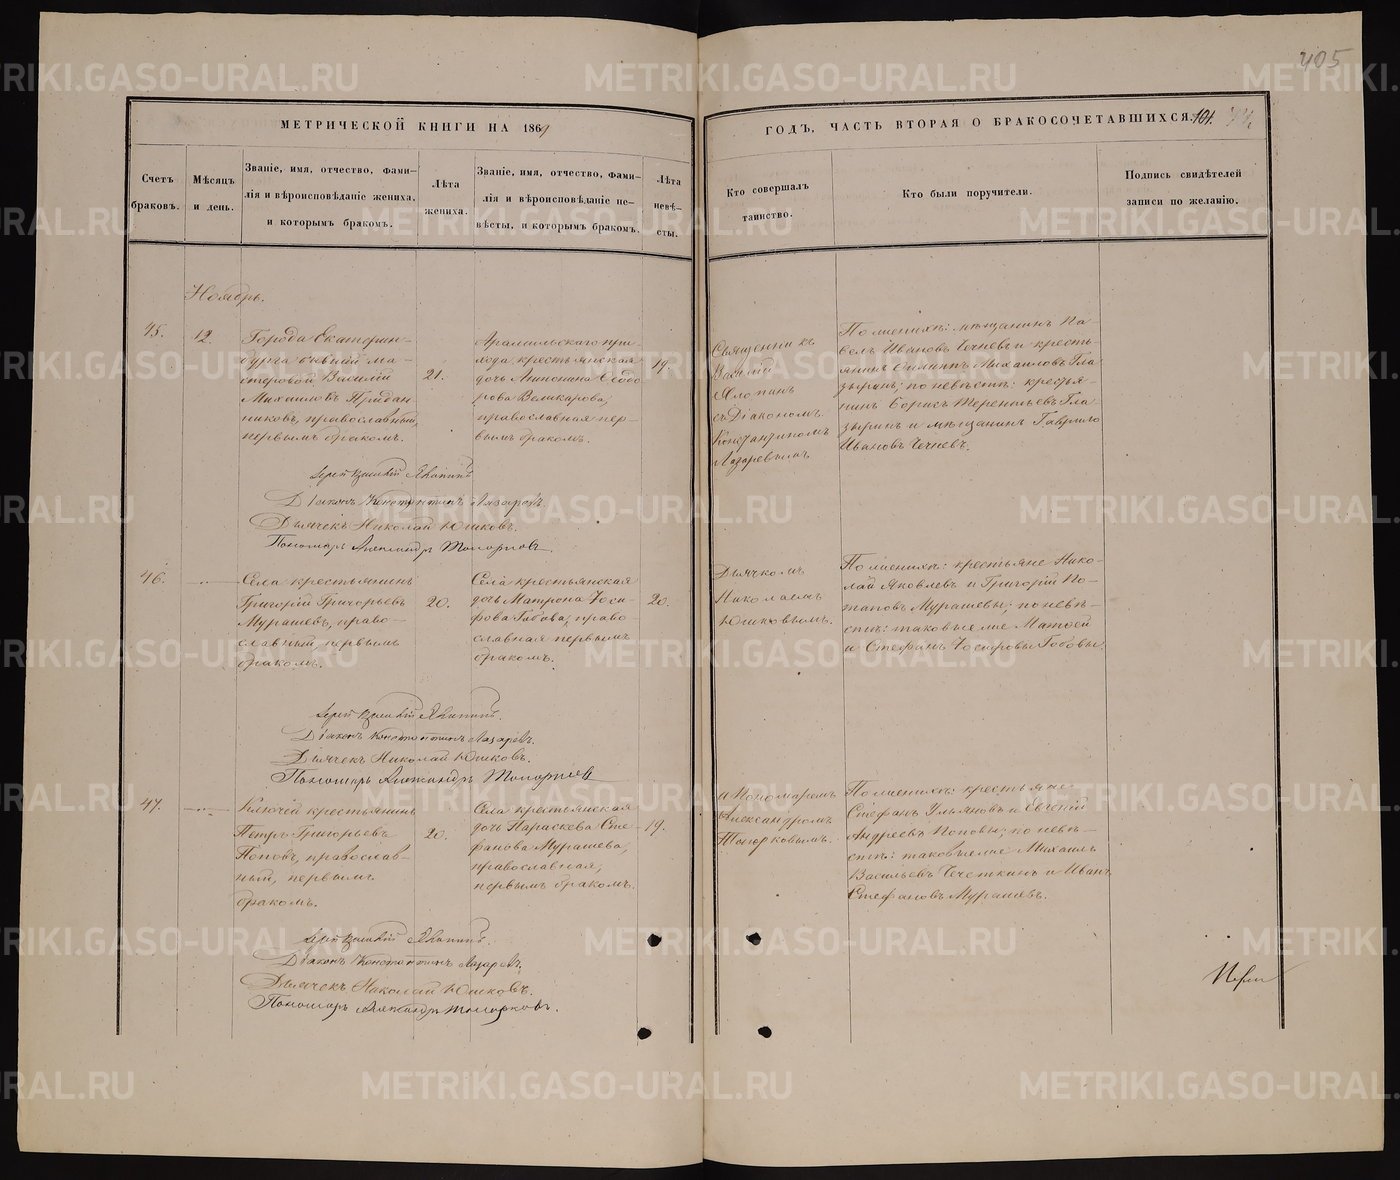 405
МЕТРИЧЕСКОЙ КНИГИ НА 1869
ГОДЪ, ЧАСТЬ ВТОРАЯ О БРАКОСОЧЕТАВШИХСЯ.
101.
Счетъ
браковъ.
Мѣсяцъ
и день.
Званіе, имя, отчество, фами-
лія и вѣроисповѣданіе жениха,
и которымъ бракомъ.
Лѣта
жениха.
Званіе, имя, отчество, фами-
лія и вѣроисповѣданіе не-
вѣсты, и которымъ бракомъ.
Лѣта
невѣ-
сты.
Кто совершалъ
таинство.
Кто были поручители.
Подпись свидѣтелей
записи по желанію.
Ноябрь.
45.
12.
Города Екатерин-
бурга бывшій ма-
стеровой Василій
Михаиловъ
православный,
первымъ бракомъ.
21.
Арамильскаго при-
хода крестьянская
дочь Антонина Ѳедо
рова Великарова,
православная пер-
вымъ бракомъ.
19.
Священникъ
Василій
Яхонтинъ
съ Діакономъ
Константиномъ
Лазаревымъ
По женихѣ: мѣщанинъ Па-
велъ Ивановъ Чечневъ и кресть-
янинъ Филиппъ Михаиловъ Гла-
зыринъ; по невѣстѣ: крестья-
нинъ Борисъ Терентьевъ Гла-
зыринъ и мѣщанинъ Гаврило
Ивановъ Чечневъ.
Іерей Василій
Діаконъ Константинъ Лазаревъ
Дьячекъ Николай Юшковъ.
Пономарь Александръ Топорковъ.
46.
Села крестьянинъ
Григорій Григорьевъ
Мурашевъ, право-
славный, первымъ
бракомъ.
20.
Села крестьянская
дочь Матрона Іоси-
фова Гобова, право-
славная первымъ
бракомъ.
20.
Дьячкомъ
Николаемъ
Юшковымъ.
По женихѣ: крестьяне Нико-
лай Яковлевъ и Григорій По-
таповъ Мурашевы; по невѣ-
стѣ: таковые же Матѳей
и Стефанъ Іосифовы Гобовы.
Іерей Василій
Діаконъ Константинъ Лазаревъ.
Дьячекъ Николай Юшковъ.
Пономарь Александръ Топорковъ
47.
Ключей крестьянинъ
Петръ Григорьевъ
Поповъ, православ-
ный, первымъ
бракомъ.
20.
Села крестьянская
дочь Параскева Сте-
фанова Мурашева,
православная,
первымъ бракомъ.
19.
и Пономаремъ
Александромъ
Топорковымъ.
По женихѣ: крестьяне
Стефанъ Ульяновъ и Евгеній
Андреевъ Поповы; по невѣ-
стѣ: таковые же Михаилъ
Васильевъ Чечеткинъ и Иванъ
Стефановъ Мурашевъ.
Іерей Василій
Діаконъ Константинъ Лазаревъ.
Дьячекъ Николай Юшковъ.
Пономарь Александръ Топорковъ.
METRIKI.GASO-URAL.RU